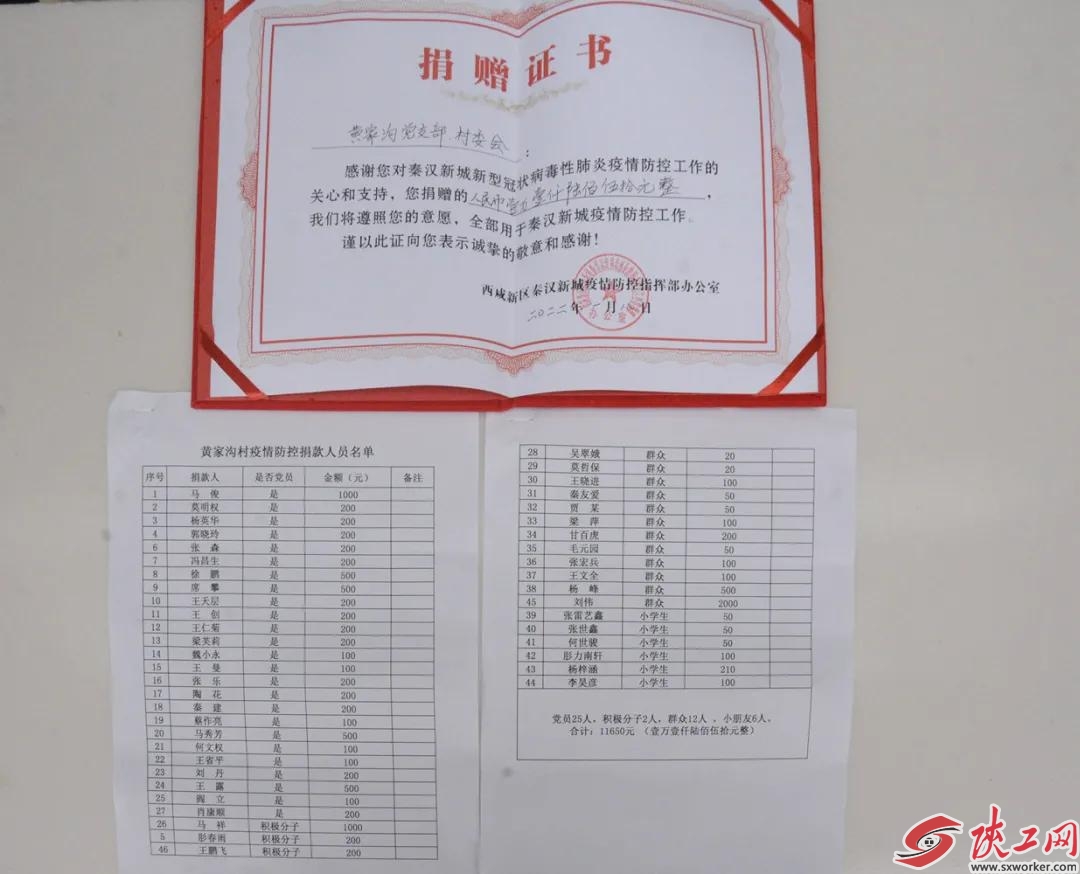 捐赠证书
黄家沟党支部、村委会：
感谢您对秦汉新城新型冠状病毒性肺炎疫情防控工作的
关心和支持，您捐赠的人民币壹万壹仟陆佰伍拾元整，
我们将遵照您的意愿，全部用于秦汉新城疫情防控工作。
谨以此证向您表示诚挚的敬意和感谢！
西咸新区秦汉新城疫情防控指挥部办公室
二〇二二年一月 日
黄家沟村疫情防控捐款人员名单
序号 捐款人 是否党员 金额（元） 备注
1 马 俊 是 1000
2 莫明权 是 200
3 杨英华 是 200
4 郭晓玲 是 200
6 张 森 是 200
7 冯昌生 是 200
8 徐 鹏 是 500
9 席 攀 是 500
10 王天层 是 200
11 王 创 是 200
12 王仁菊 是 200
13 梁芙莉 是 200
14 魏小永 是 100
15 王 曼 是 100
16 张 乐 是 200
17 陶 花 是 200
18 秦 建 是 200
19 蔡作亮 是 100
20 马秀芳 是 500
21 何文权 是 100
22 王省平 是 100
23 刘 丹 是 200
24 王 露 是 500
25 阎 立 是 100
27 肖康顺 是 200
26 马 祥 积极分子 1000
5 彤春雨 积极分子 200
46 王鹏飞 积极分子 200
28 吴翠娥 群众 20
29 莫哲保 群众 20
30 王晓进 群众 100
31 秦友爱 群众 50
32 贾 某 群众 50
33 梁 萍 群众 100
34 甘百虎 群众 200
35 毛元园 群众 50
36 张宏兵 群众 100
37 王文全 群众 100
38 杨 峰 群众 500
45 刘伟 群众 2000
39 张雷艺鑫 小学生 50
40 张世鑫 小学生 50
41 何世骏 小学生 50
42 彤力南轩 小学生 100
43 杨梓涵 小学生 210
44 李昊彦 小学生 100
党员25人，积极分子2人，群众12人，小朋友6人，
合计：11650元 （壹万壹仟陆佰伍拾元整）
陕工网
www.sxworker.com